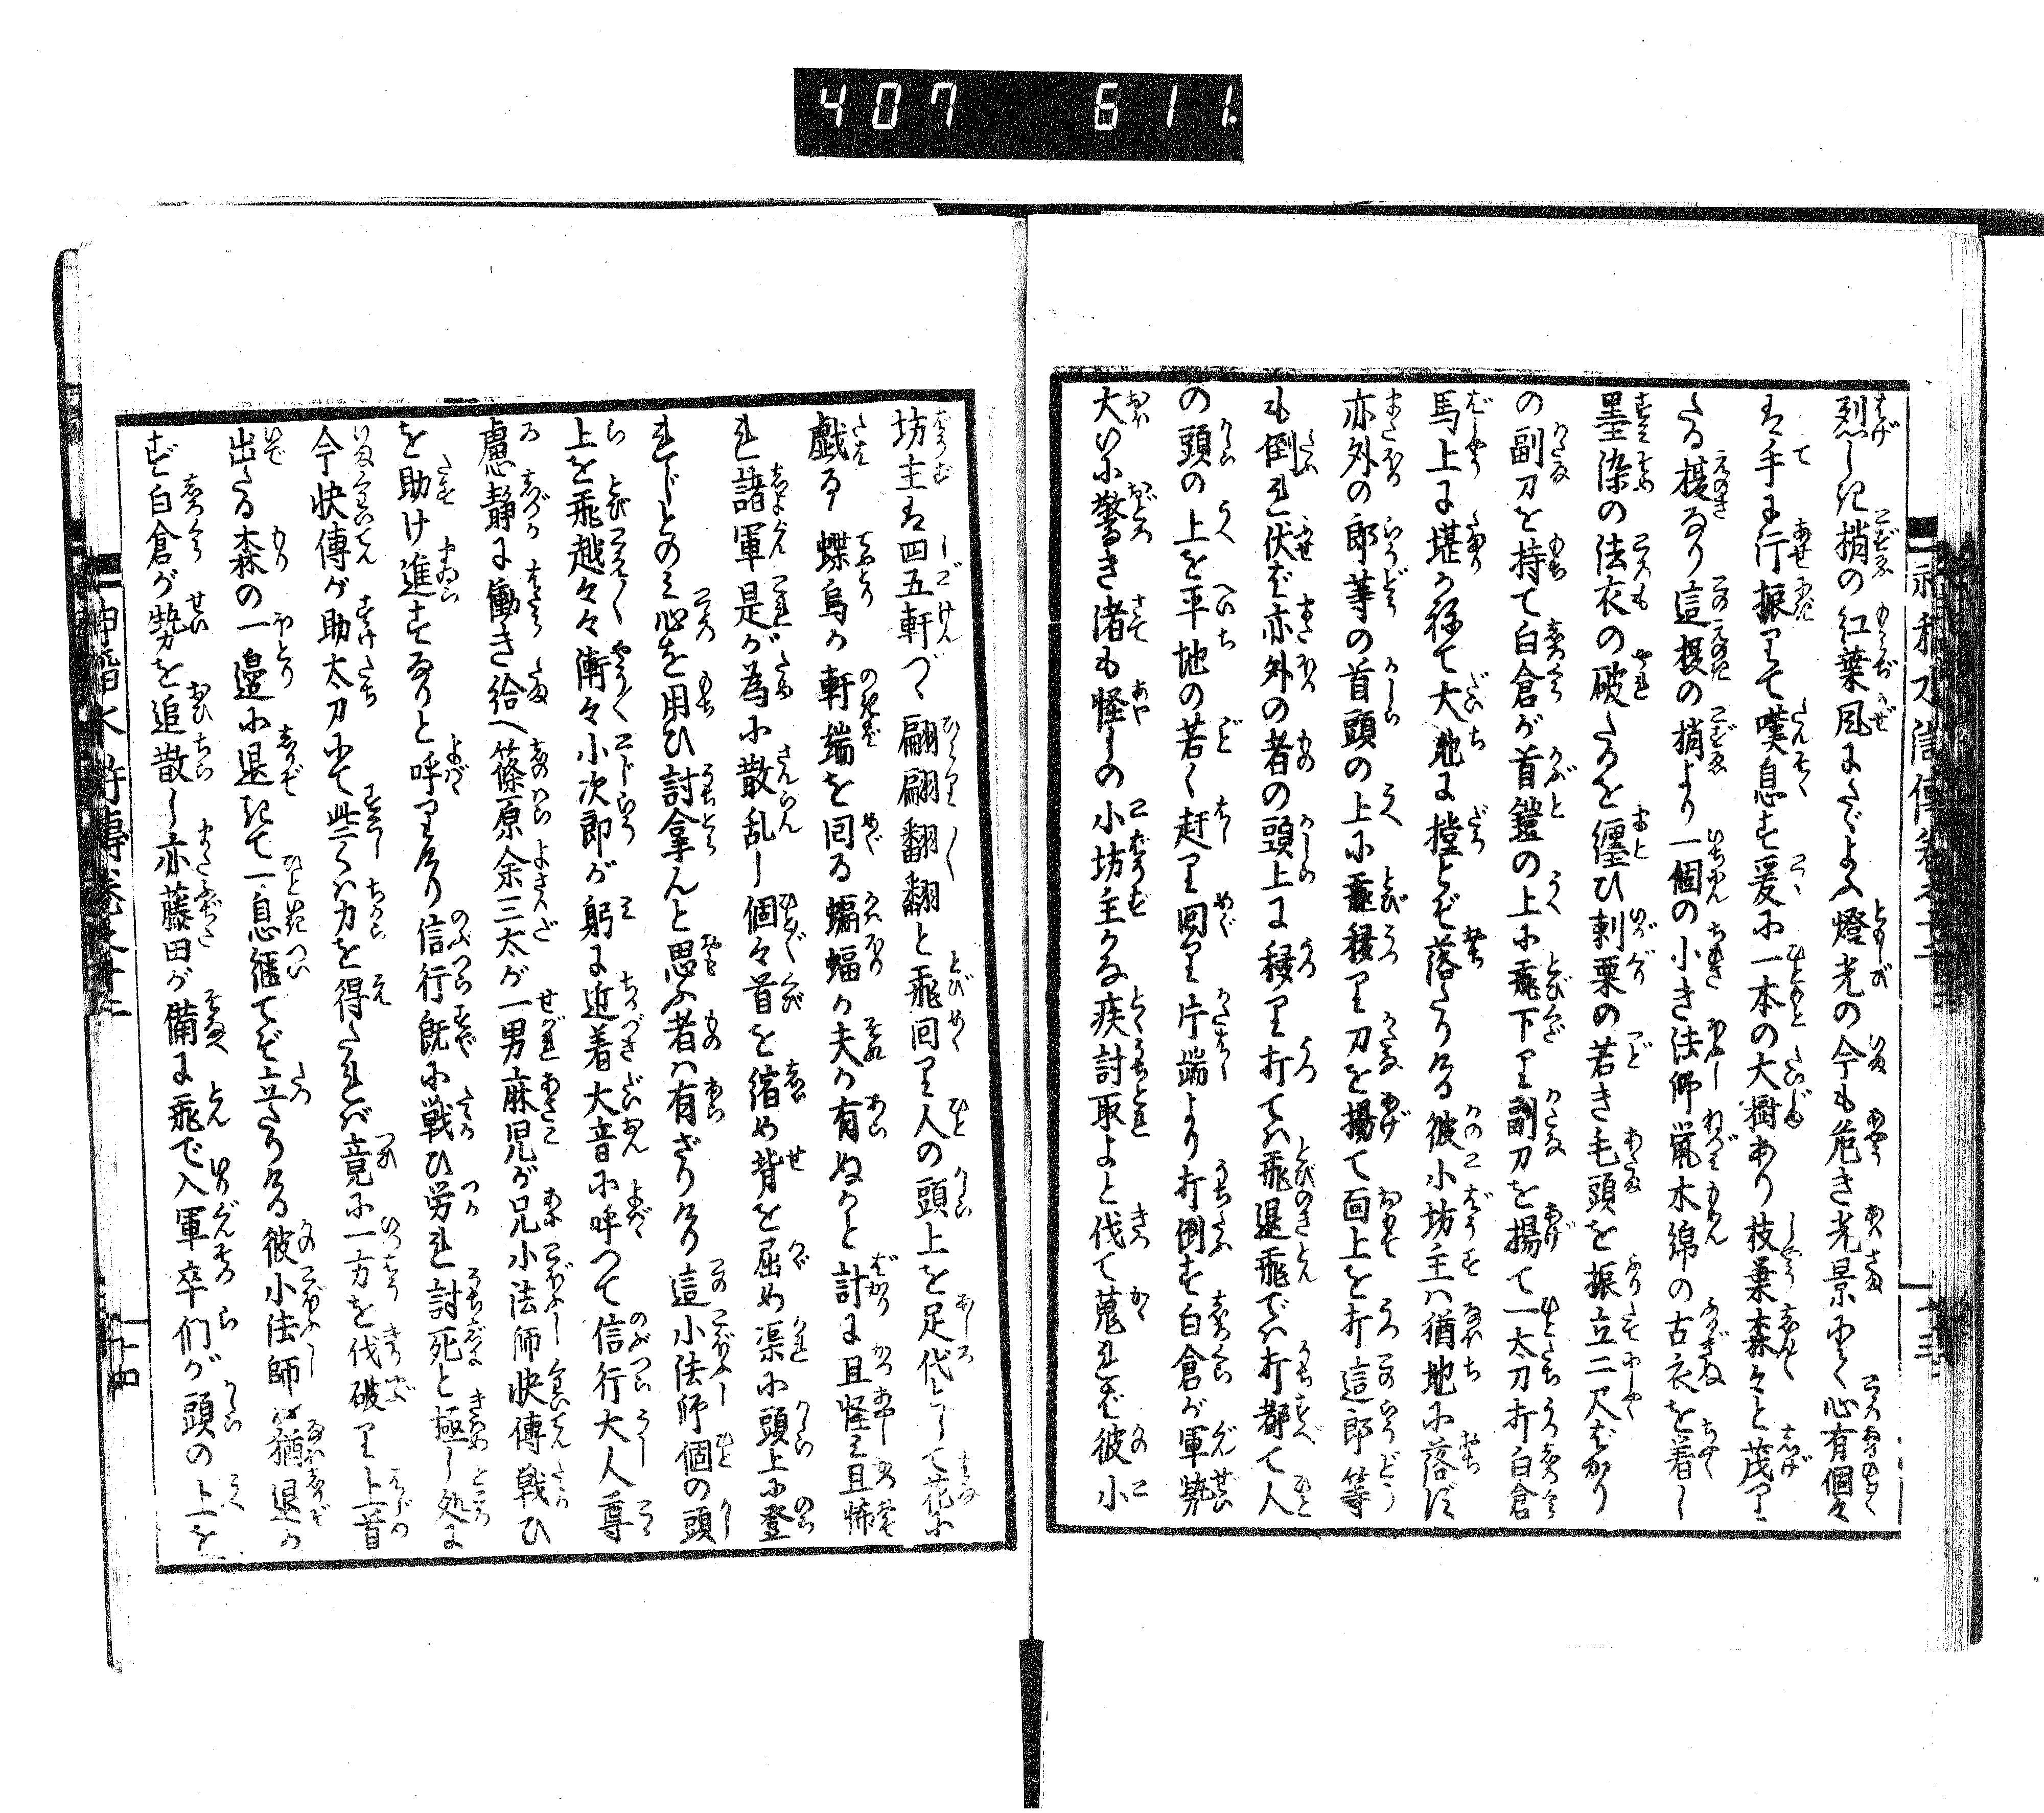 407 611.
烈しき梢の紅葉風にたゞよふ燈光の今も危き光景にて心有個々
は手に汗振りて嘆息す爰に一本の大樹あり枝葉森々と茂り
たる榎なり這榎の梢より一個の小き法師鼠木綿の古衣を着し
墨染の法衣の破たるを纏ひ刺栗の若き毛頭を振立二尺ばかり
の副刀を持て白倉が首鎧の上に飛下り副刀を揚て一太刀打白倉
馬上に堪か得て大地に撞とぞ落たりける彼小坊主ハ猶地に落ず
亦外の郎等の首頭の上に飛移り刀を揚て面上を打這郎等
も倒れ伏ば亦外の者の頭上に移り打てハ飛退飛でハ打都て人
の頭の上を平地の若く赶り回り片端より打倒す白倉が軍勢
大いに驚き渚も怪しの小坊主かな疾討取よと伐て蒐れば彼小
坊主は四五軒づゝ翩翩翻翻と飛回り人の頭上を足代として花に
戯る蝶鳥か軒端を回る蝙蝠か夫か有ぬかと計に且怪み且怖
れ諸軍是が為に散乱し個々首を縮め背を屈め渠に頭上に登
れじとのみ心を用ひ討拿んと思ふ者ハ有ざりけり這小法師個の頭
上を飛越々々漸々小次郎が躬に近着大音に呼つて信行大人尊
慮静に働き給へ篠原余三太が一男麻児が兄小法師快傳戦ひ
を助け進すなりと呼りけり信行既に戦ひ労れ討死と極し処に
今快傳が助太刀にて些しハ力を得たれバ竟に一方を伐破り上首
出たる森の一邊に退きて一息継てぞ立たりける彼小法師ハ猶退か
ず白倉が勢を追散し亦藤田が備に飛で入軍卒們が頭の上を
十四